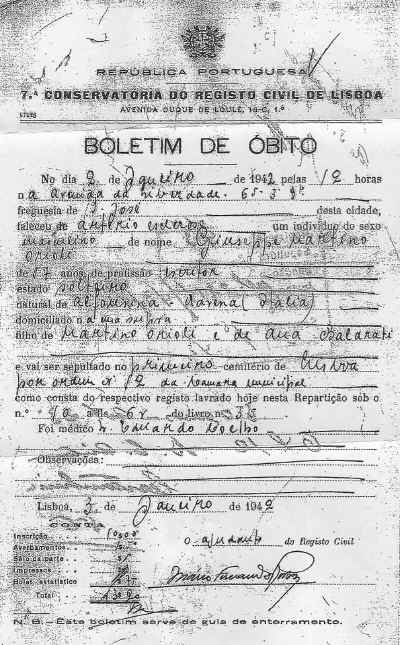 REPÚBLICA PORTUGUESA
7.ª CONSERVATÓRIA DO REGISTO CIVIL DE LISBOA
AVENIDA DUQUE DE LOULÉ, 1.º
BOLETIM DE ÓBITO
No dia 2 de Janeiro de 1942 pelas 12 horas
n a Avenida da Liberdade. 65- 3º
freguesia de S. José desta cidade,
faleceu de um indivíduo do sexo
masculino de nome Giuseppe Martino
Orioli
de 57 anos, de profissão escritor
estado solteiro
natural de (Italia)
domiciliado n a mesma
filho de Martino Orioli e de Ana
e vai ser sepultado no primeiro cemitério de Lisboa
por ordem nº 12 da Camara municipal
como consta do respectivo registo lavrado hoje nesta Repartição sob o
n.º a fls 6v do livro n.º 35
Foi médico Eduardo Coelho
Observações:
Lisboa, 3 de Janeiro de 1942
CONTA
Inscrição
Averbamentos
Selo da parte
Impressos
Bolet. estatístico
Total
O ajudante do Registo Civil
N. B.—Este boletim serve de guia de enterramento.